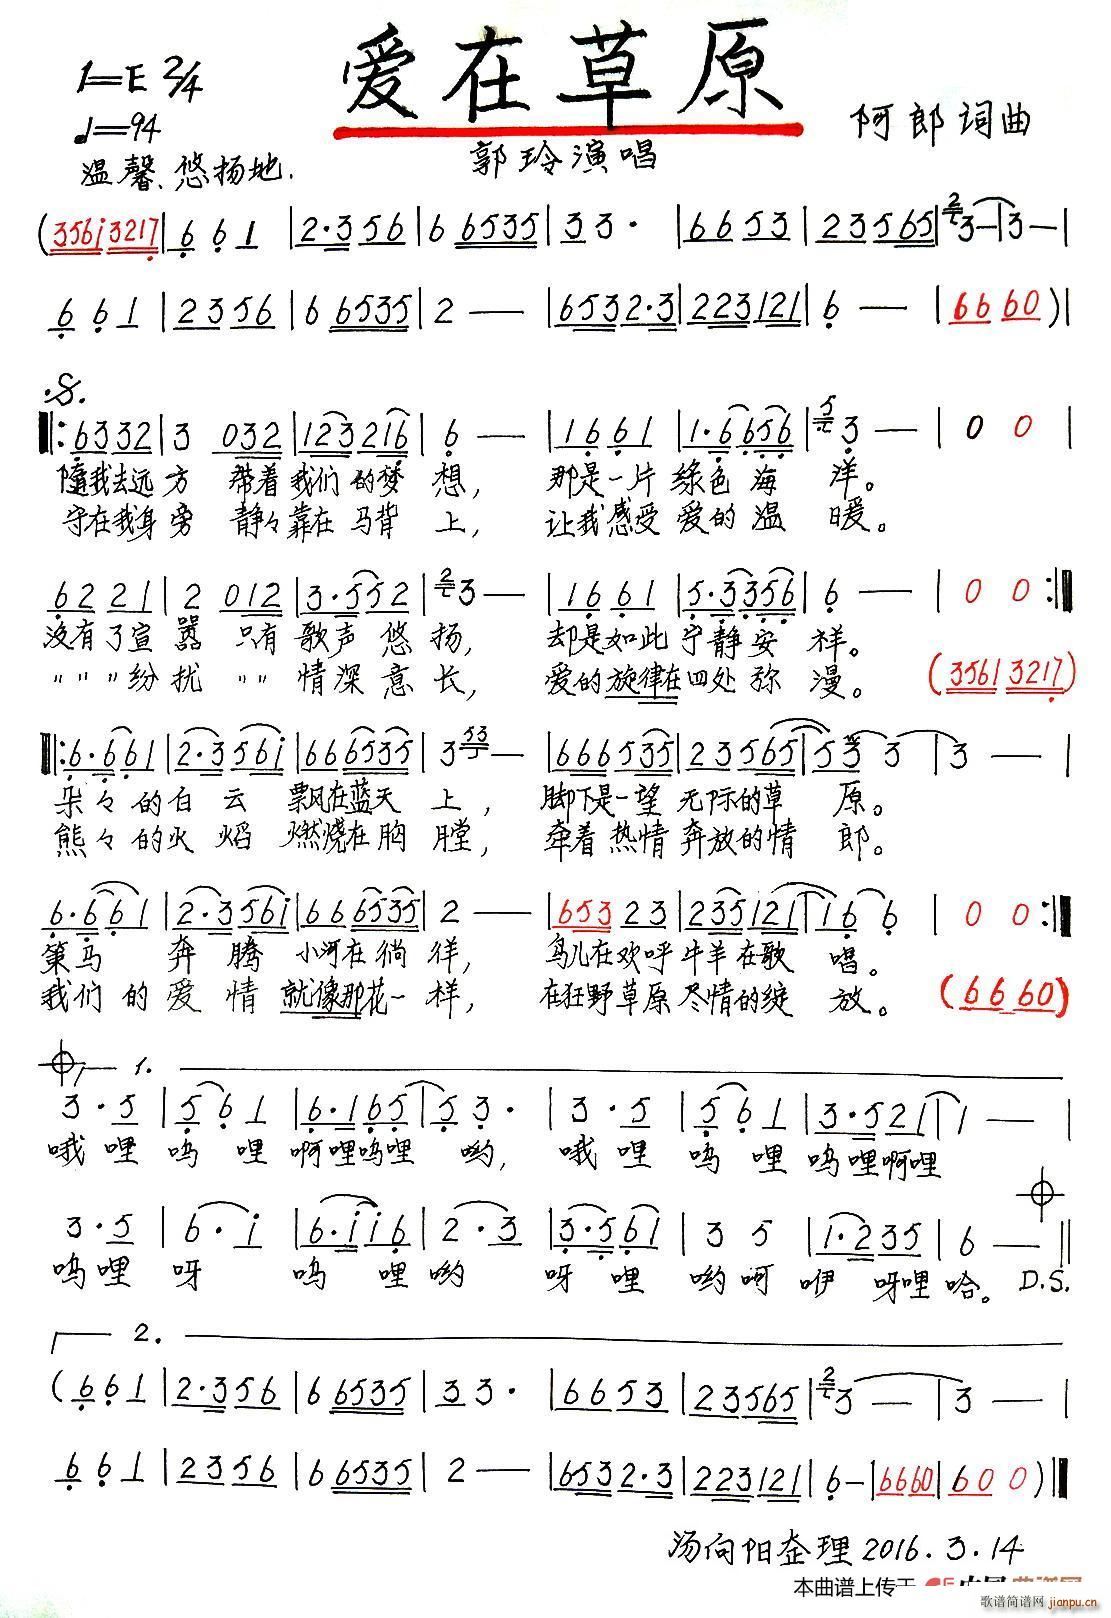 爱在草原
1=E 2/4
♩=94
阿郎词曲
温馨、悠扬地.
郭玲演唱
(356i3217|6 6 1|2·356|6 6535|3 3·|6653|23565|3—|3—|
6 6 1|2356|6 6535|2—|6532·3|223121|6—|6660)|
𝄋
‖:6332|3 032|123216|6—|1661|1·6656|3—|0 0|
随我去远方 带着我们的梦想, 那是一片绿色海洋。
守在我身旁 静々靠在马背上, 让我感受爱的温暖。
6221|2 012|3·552|3—|1661|5·3356|6—|0 0:‖
没有了宣嚣 只有歌声悠扬, 却是如此宁静安祥。
〃〃〃纷扰 〃〃情深意长, 爱的旋律在四处弥漫。 (3561 3217)
‖:6·661|2·356i|666535|3—|666535|235655|5 3 3|3—|
朵々的白云 飘在蓝天上, 脚下是一望无际的草原。
熊々的火焰 燃烧在胸膛, 牵着热情奔放的情郎。
6·661|2·356i|666535|2—|65323|235121|1 6 6|0 0:‖
策马奔腾 小河在徜徉, 鸟儿在欢呼牛羊在歌唱。
我们的爱情 就像那花一样, 在狂野草原尽情的绽放。 (6660)
1.
3·5|5 6 1|6·165|5 3·|3·5|5 6 1|3·521|1—|
哦哩呜哩啊哩呜哩哟, 哦哩呜哩呜哩啊哩
3·5|6·i|6·ii6|2·3|3·561|3 5|1·235|6—‖
呜哩呀 呜哩哟 呀哩哟呵咿呀哩哈。 D.S.
2.
(6 6 1|2·356|6 6535|3 3·|6653|23565|3—|3—|
6 6 1|2356|6 6535|2—|6532·3|223121|6—|6660|60 0)‖
汤向阳整理2016.3.14
本曲谱上传于
歌谱简谱网
jianpu.cn